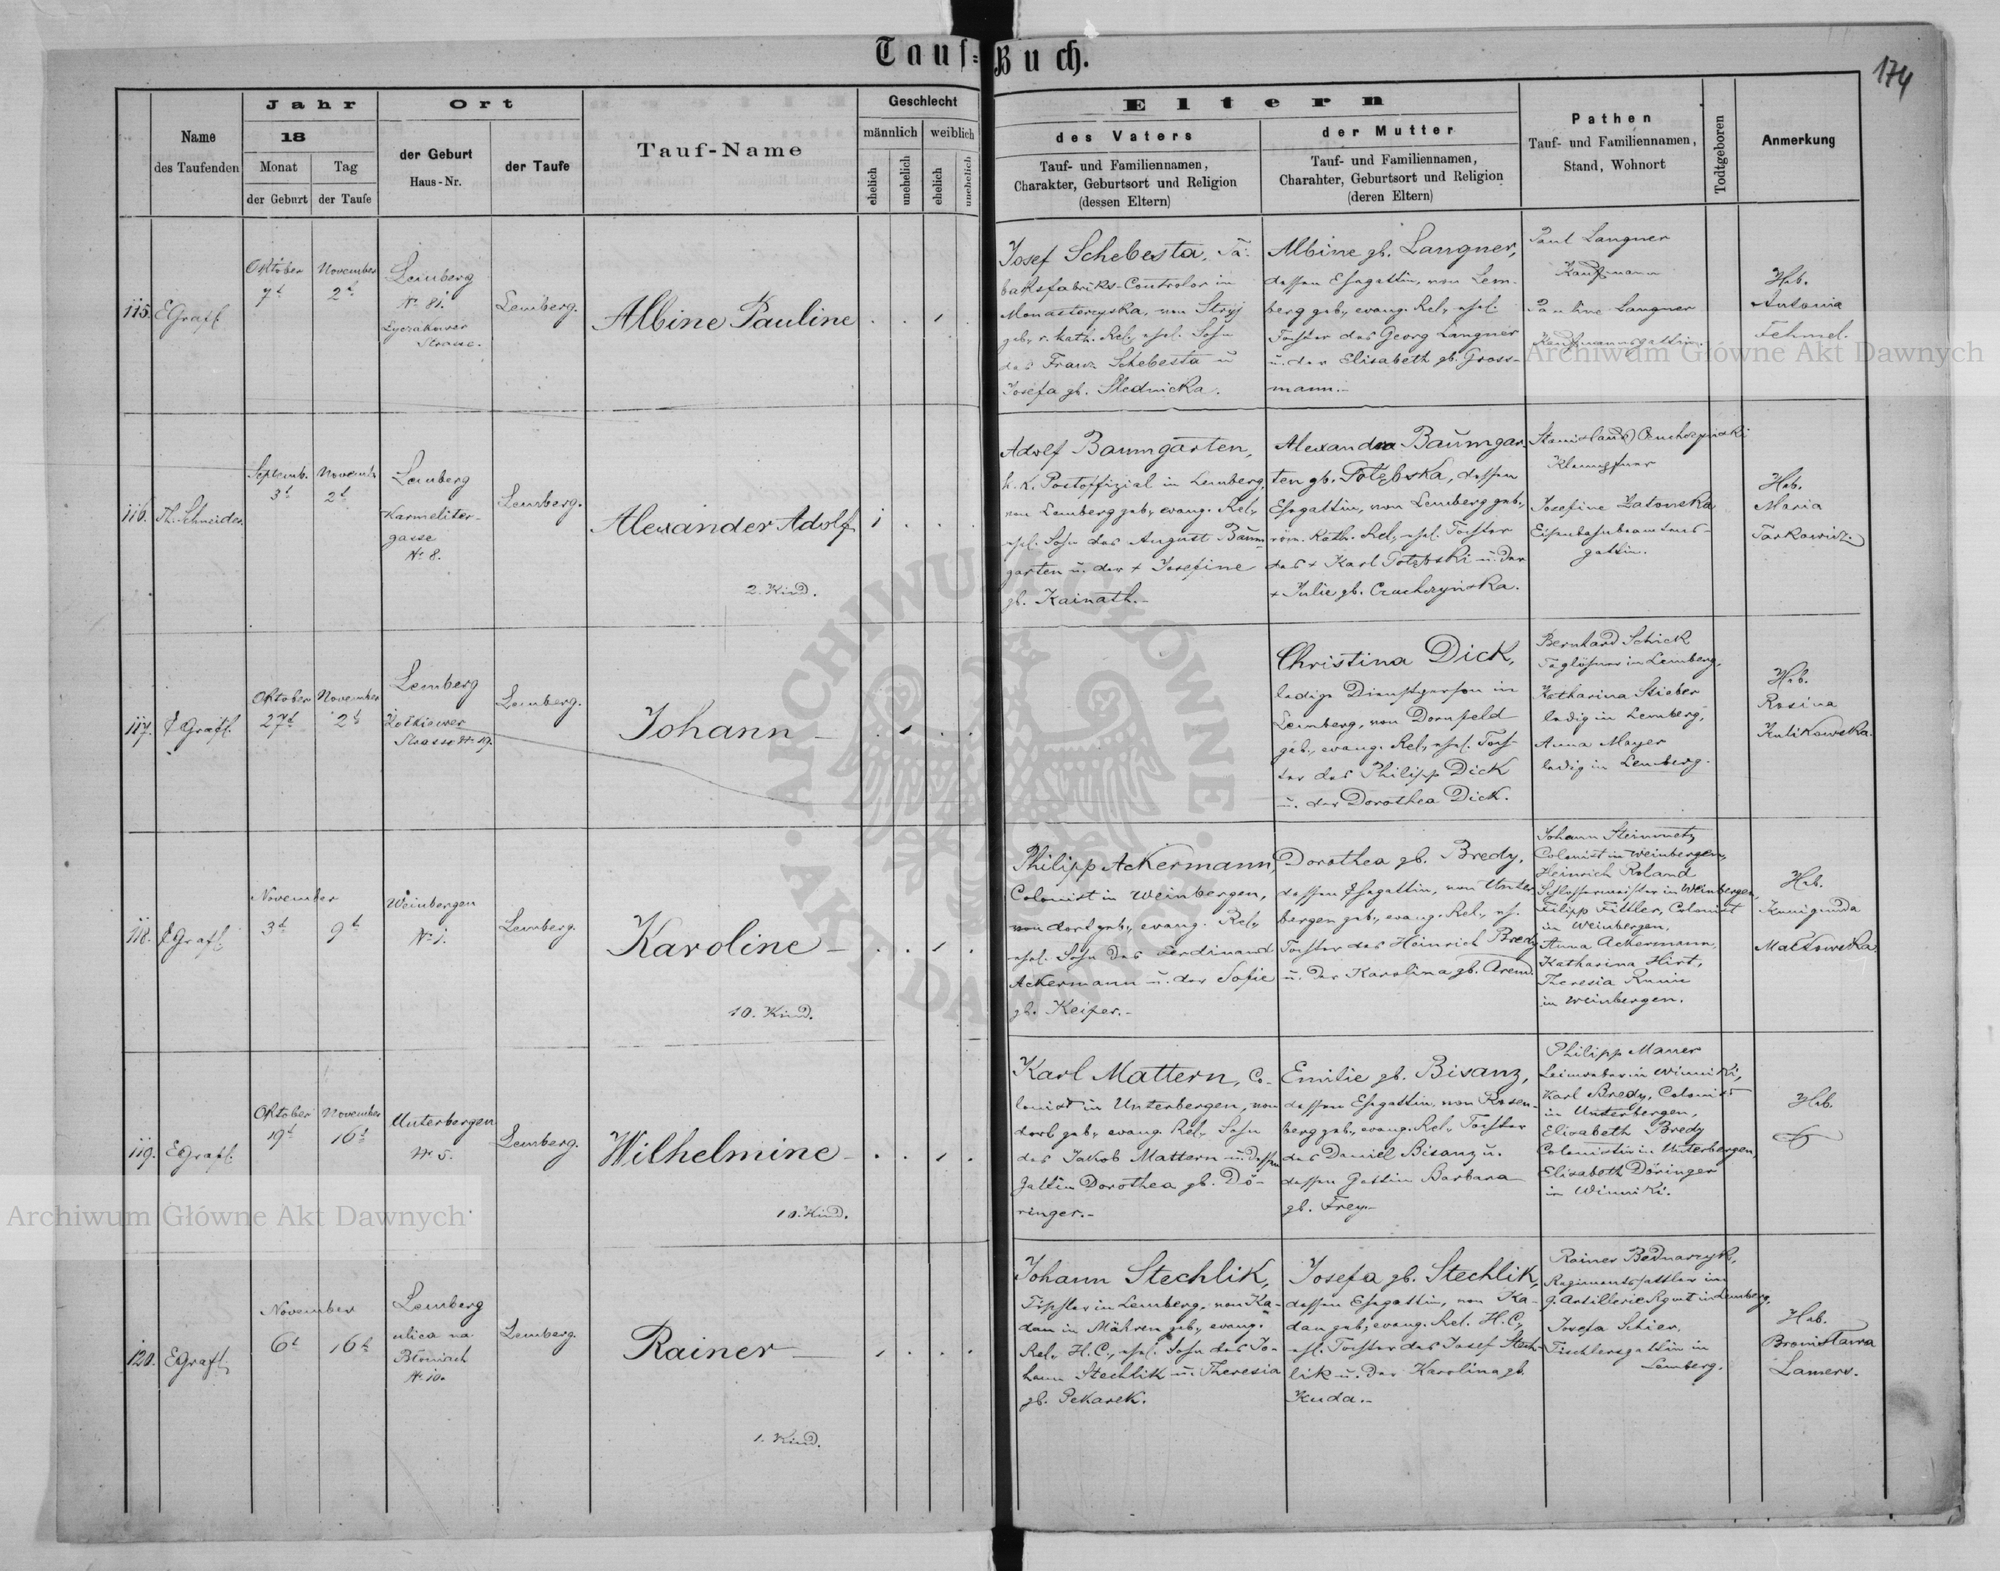 Tauf-Buch.
174
Name
des Taufenden
Jahr
18
Monat
der Geburt
Tag
der Taufe
Ort
der Geburt
Haus-Nr.
der Taufe
Tauf-Name
Geschlecht
männlich
weiblich
ehelich
unehelich
ehelich
unehelich
Eltern
des Vaters
Tauf- und Familiennamen,
Charakter, Geburtsort und Religion
(dessen Eltern)
der Mutter
Tauf- und Familiennamen,
Charahter, Geburtsort und Religion
(deren Eltern)
Pathen
Tauf- und Familiennamen,
Stand, Wohnort
Todtgeboren
Anmerkung
115.
EGrafl.
Oktober
7t
November
2t
Lemberg
Nr. 81.
Lyczakower
Strasse.
Lemberg.
Albine Pauline
Josef Schebesta, Ta-
baksfabriks-Controlor in
Monasterzyska, von Stryj
geb., r. kath. Rel., ehel. Sohn
des Franz Schebesta u
Josefa gb. Slednicka.
Albine gb. Langner,
dessen Ehegattin, von Lem-
berg geb., evang. Rel., ehel.
Tochter des Georg Langner
u. der Elisabeth gb. Gross-
mann.-
Paul Langner
Kaufmann
Pauline Langner
Kaufmannsgattin.
Heb.
Antonia
Fehmel.
116.
Th. Schneider.
Septemb.
3t
Novemb.
2t
Lemberg
Karmeliter-
gasse
Nr. 8.
Lemberg.
Alexander Adolf
1
2. Kind.
Adolf Baumgarten,
k. k. Postoffizial in Lemberg,
von Lemberg geb., evang. Rel.,
ehel. Sohn des August Baum-
garten u. der + Josefine
gb. Kainath.-
Alexandra Baumgar-
ten gb. , dessen
Ehegattin, von Lemberg geb.,
röm. Kath. Rel., ehel. Tochter
des + Karl u. der
+ Julie gb. Czuchzynska.
Stanislaus
Klempfner
Josefine Zatonska
Eisenbahnbeamtens-
gattin.
Heb.
Maria
Tarkowicz.
117.
EGrafl.
Oktober
27t
November
2t
Lemberg
Zolkiewer
Strasse Nr. 19.
Lemberg.
Johann
Christina Dick,
ledige Dienstperson in
Lemberg, von Dornfeld
geb., evang. Rel., ehel. Toch-
ter des Philipp Dick
u. der Dorothea Dick.
Bernhard Schick
Taglöhner in Lemberg,
Katharina Stieber
ledig in Lemberg,
Anna Mayer
ledig in Lemberg.
Heb.
Rosina
Kulikowska.
118.
EGrafl.
November
3t
9t
Weinbergen
Nr. 1.
Lemberg.
Karoline
10. Kind.
Philipp Ackermann,
Colonist in Weinbergen,
von dort geb., evang. Rel.,
ehel. Sohn des Ferdinand
Ackermann u. der Sofie
gb. Keiper.-
Dorothea gb. Bredy,
dessen Ehegattin, von Unter
bergen geb., evang. Rel., eh.
Tochter des Heinrich Bredy
u. der Karolina gb. Arend.
Johann Steinmetz
Colonist in Weinbergen,
Heinrich Roland
Schlossermeister in Weinbergen,
Filipp Fittler, Colonist
in Weinbergen,
Anna Ackermann,
Katharina Hirt,
Theresia
in Weinbergen.
Heb.
Kunigunda
Mackowska.
119.
EGrafl.
Oktober
19t
November
16t
Unterbergen
Nr. 5.
Lemberg.
Wilhelmine
10. Kind.
Karl Mattern, Co-
lonist in Unterbergen, von
dort geb., evang. Rel., Sohn
des Jakob Mattern u. dessen
Gattin Dorothea gb. Dö-
ringer.-
Emilie gb. Bisanz,
dessen Ehegattin, von Rosen-
berg geb., evang. Rel., Tochter
des Daniel Bisanz u.
dessen Gattin Barbara
gb. Frey.-
Philipp Manrer
Leimweber in Winniki,
Karl Bredy, Colonist
in Unterbergen,
Elisabeth Bredy
Colonistin in Unterbergen,
Elisabeth Döringer
in Winniki.
Heb.
120.
EGrafl.
November
6t
16t
Lemberg
ulica na
Bloniach
Nr. 10.
Lemberg.
Rainer
1. Kind.
Johann Stechlik,
Tischler in Lemberg, von Ka-
dan in Mähren geb., evang.
Rel. H. C., ehel. Sohn des Jo-
hann Stechlik u. Theresia
gb. Pekarek.
Josefa gb. Stechlik,
dessen Ehegattin, von Ka-
dan geb., evang. Rel. H. C.,
ehl. Tochter des Josef Stech-
lik u. der Karolina gb.
Kuda.-
Rainer Bednarzyk,
Regimentssattler im
9. Artillerie Rgmt in Lemberg,
Josefa Schier,
Tischlersgattin in
Lemberg.
Heb.
Bronislawa
Lamers.
Archiwum Główne Akt Dawnych
Archiwum Główne Akt Dawnych
ARCHIWUM GŁÓWNE AKT DAWNYCH